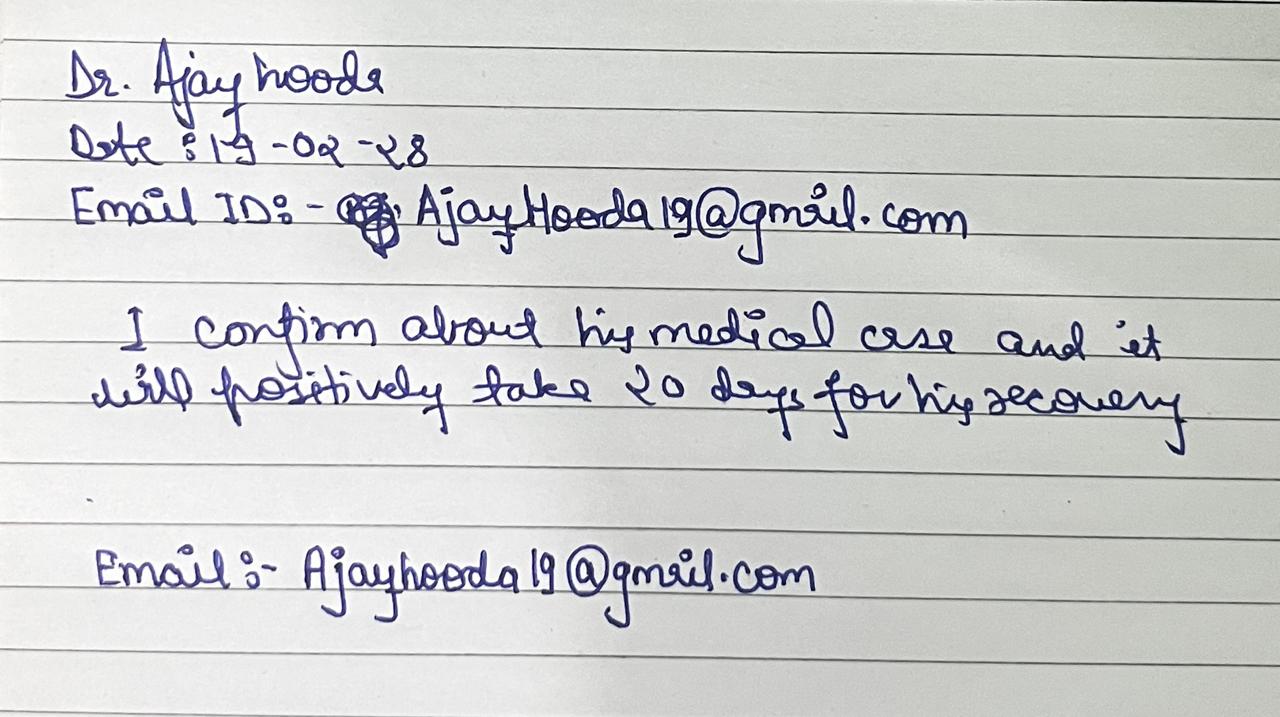 Dr. Ajay hooda
Date : 19-02-28
Email ID:- AjayHooda19@gmail.com
I confirm about his medical case and it
will positively take 20 days for his recovery
Email :- Ajayhooda19@gmail.com